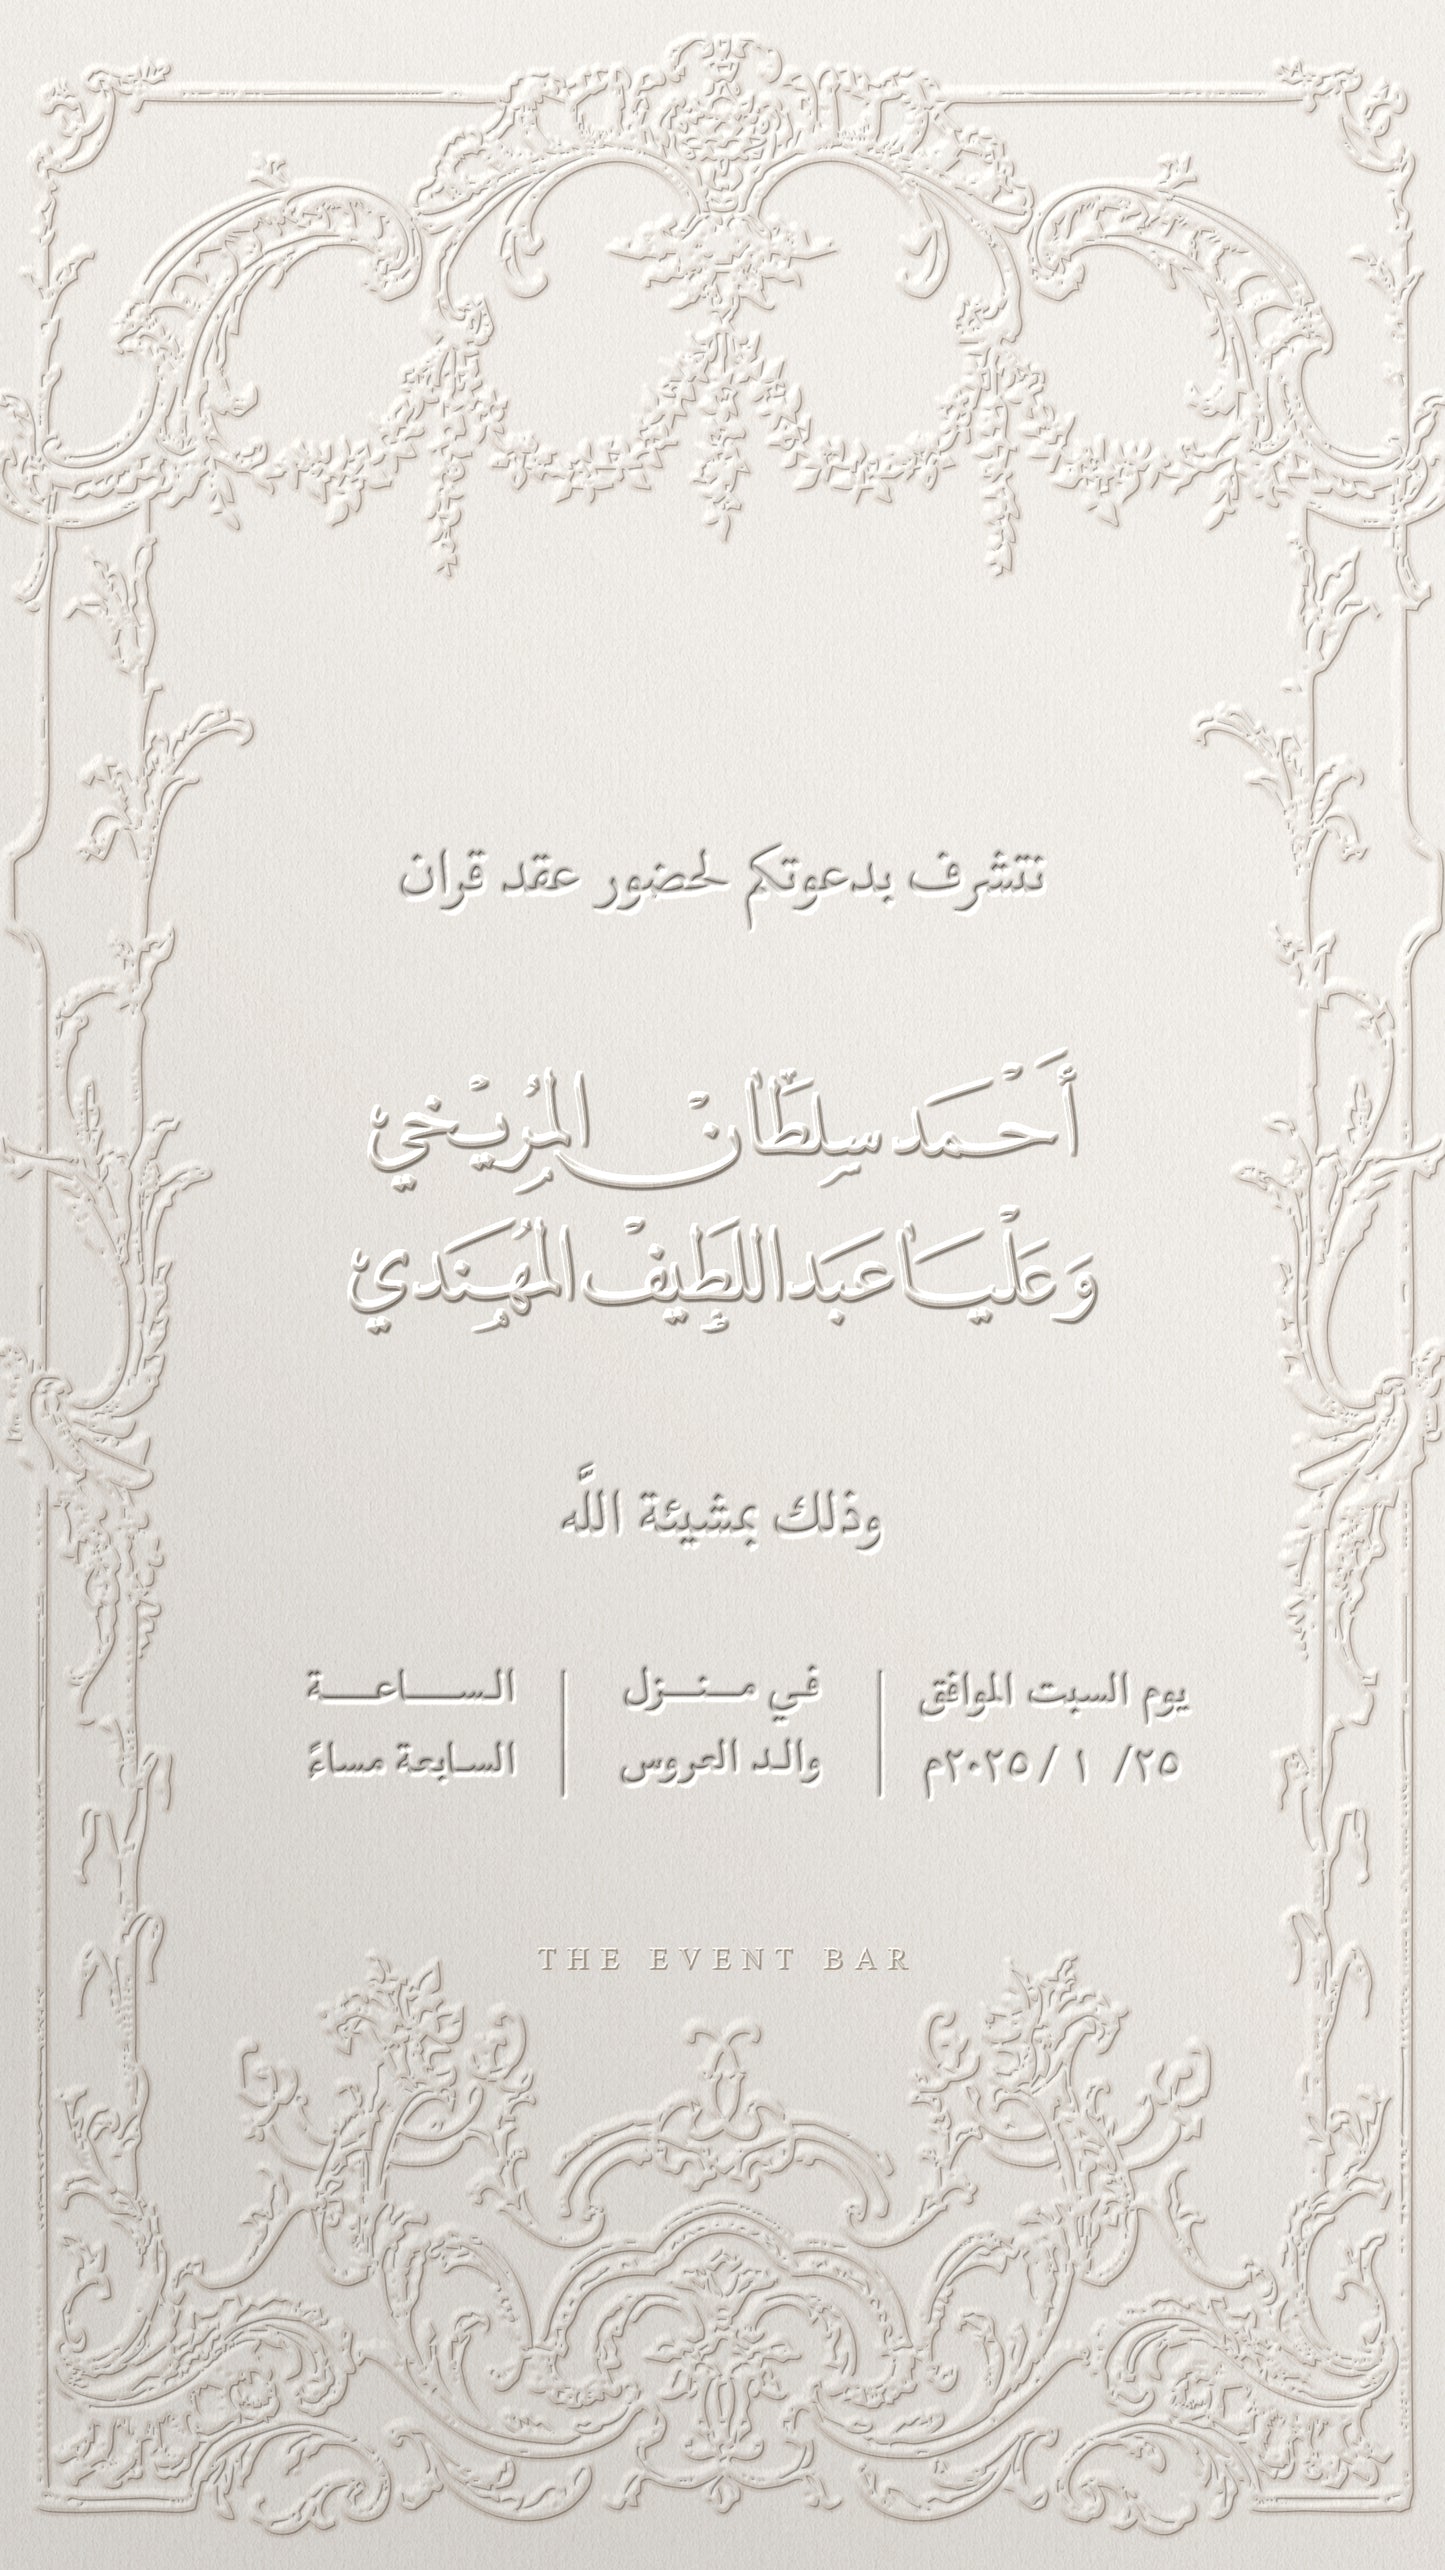 نتشرف بدعوتكم لحضور عقد قران
أَحْمَد سِلطَان المُرِيْخيْ
وَعَلْيَا عَبَداللَطِيفْ المُهَنَديْ
وذلك بمشيئة اللَّه
يوم السبت الموافق
٢٥/ ١ / ٢٠٢٥م
في مـنـزل
والد العروس
الـسـاعـة
السابعة مساءً
THE EVENT BAR